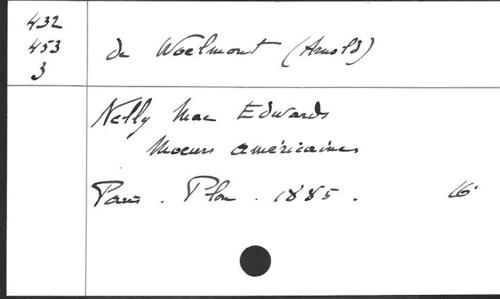 432
453
3
de Woelmont (Arnold)
Nelly Mac Edwards
Moeurs américaines
Paris. Plon. 1885.
16°